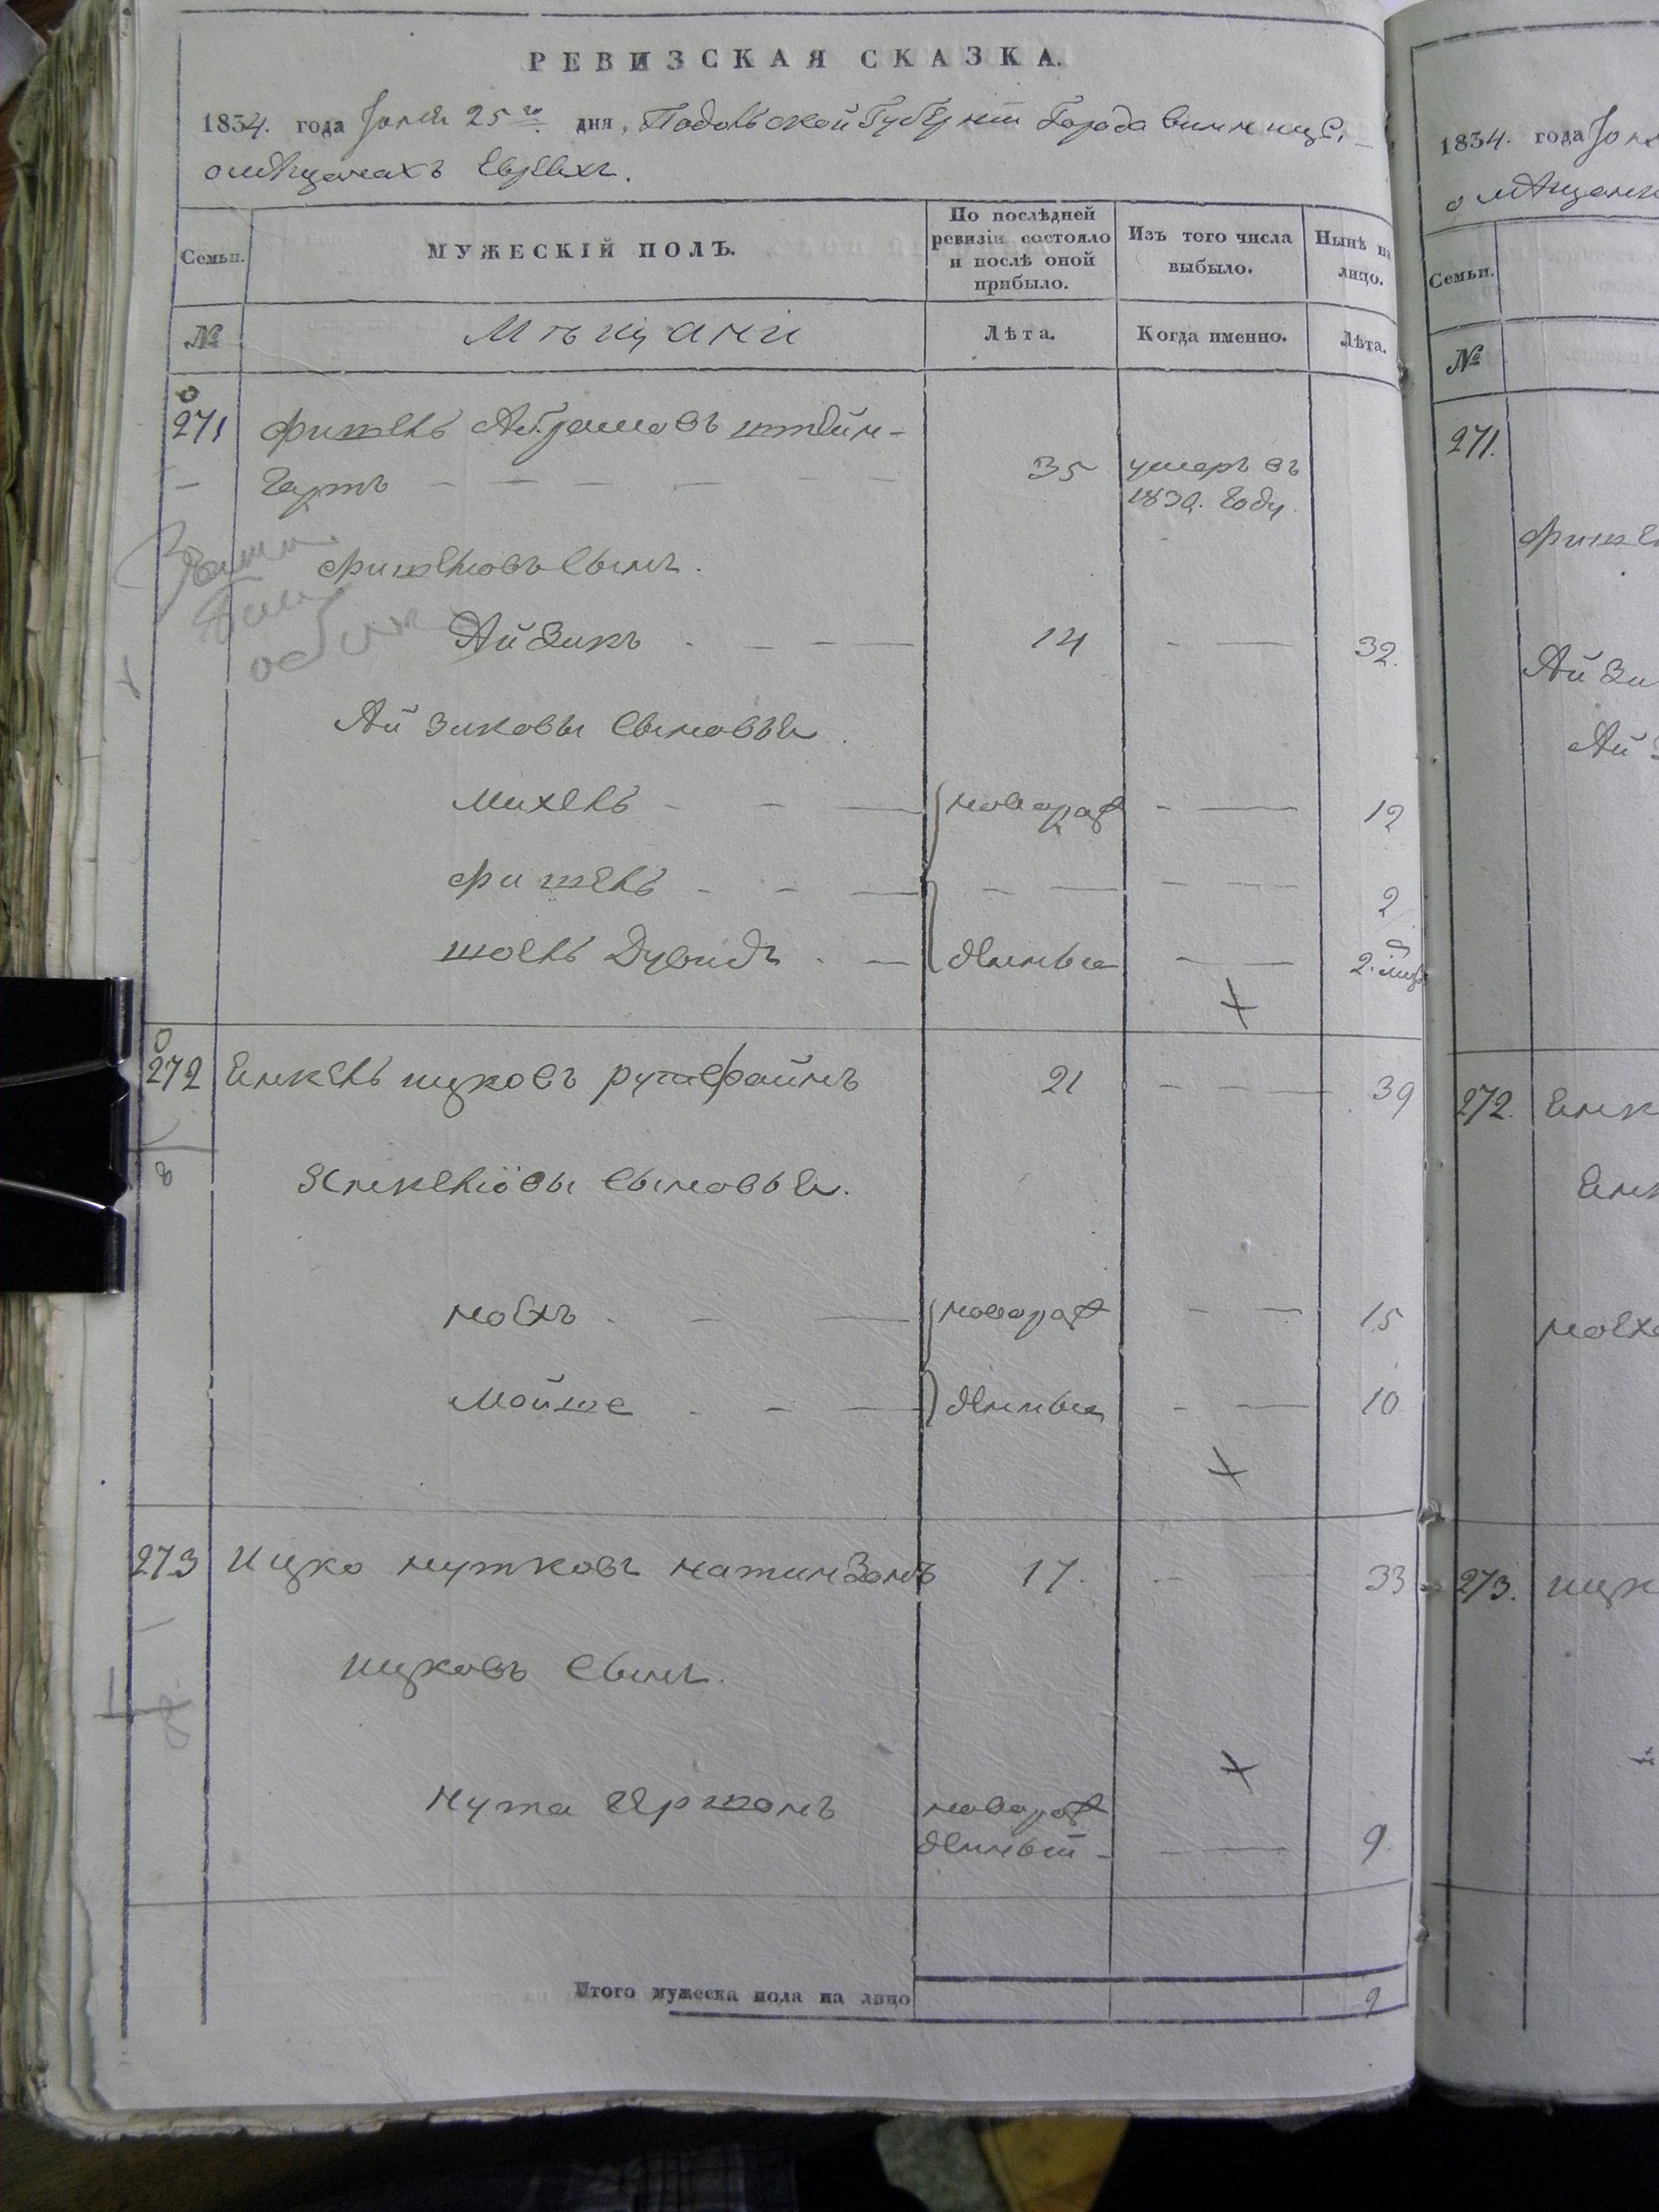 РЕВИЗСКАЯ СКАЗКА.
1834. года Іюля 25го дня, Подольской Губерніи Города Винницы,
о мѣщанахъ Евреяхъ.
Семьи. МУЖЕСКІЙ ПОЛЪ. По послѣдней ревизіи состояло и послѣ оной прибыло. Изъ того числа выбыло. Нынѣ на лицо.
№ Мѣщани Лѣта. Когда именно. Лѣта.
271 Фишель Абрамовъ штейн-
гартъ 35 умеръ въ
1830. году
Фишелювъ сынъ.
Айзикъ 14 32.
Айзиковы сыновья.
Михель новорож 12
Фишель 2
шоель Дувидъ денные 2. мѣс
272 Енкель ицковъ 21 39
Енкелювы сыновья.
ноехъ новорож 15
Мойше денные 10
273 Ицко нутковъ натинзонъ 17. 33
ицковъ сынъ.
Нута Гершонъ новорож
денный 9.
Итого мужеска пола на лицо 9
1834. года
о мѣщанк
Семьи.
№
271.
Фишел
Айзи
Ай
272. Енк
Енк
ноех
273. ицк